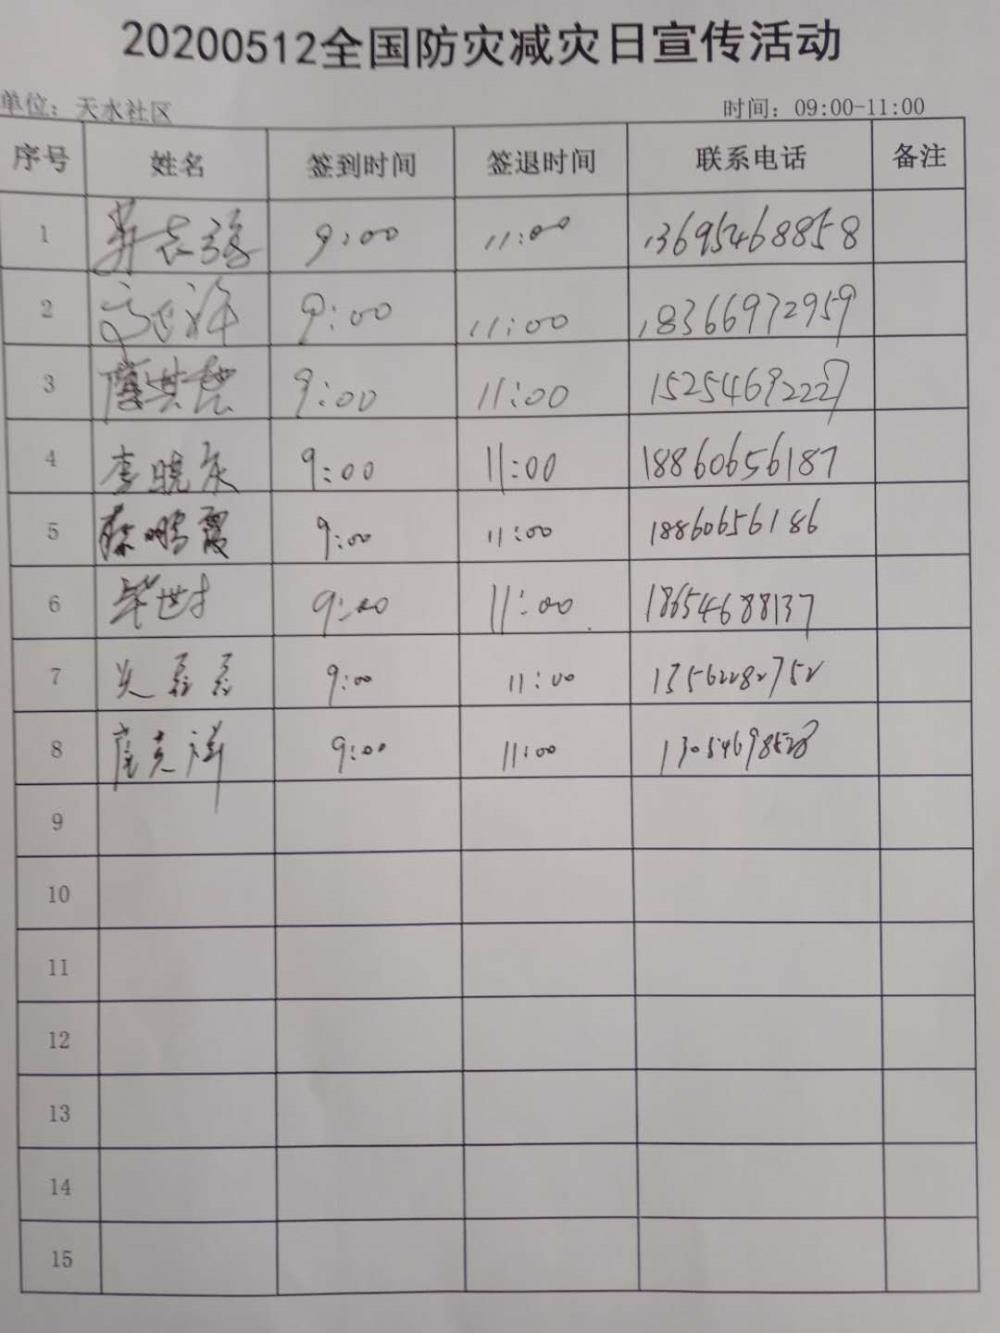 20200512全国防灾减灾日宣传活动
单位：天水社区 时间：09:00-11:00
序号 姓名 签到时间 签退时间 联系电话 备注
1 9:00 11:00 13695468858
2 9:00 11:00 18366972959
3 9:00 11:00 15254692227
4 李晓庆 9:00 11:00 18860656187
5 9:00 11:00 18860656186
6 毕世才 9:00 11:00 18654688137
7 吴磊磊 9:00 11:00 13562282752
8 9:00 11:00 13054698528
9
10
11
12
13
14
15